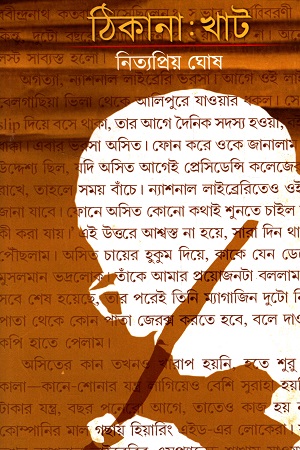 ঠিকানা : খাট
নিত্যপ্রিয় ঘোষ
সাব্যস্ত হলো।
অগত্যা, ন্যাশনাল লাইব্রেরি ভরসা।
বেলগাছিয়া ভিলা থেকে আলিপুরে যাওয়ার ধকল।
slip দিয়ে বসে থাকা, তার আগে দৈনিক সদস্য হওয়া,
একা। এবার ভরসা অসিত। ফোন করে ওকে জানালাম
উদ্দেশ্য ছিল, যদি অসিত আগেই প্রেসিডেন্সি কলেজের
রাখে, তাহলে সময় বাঁচে। ন্যাশনাল লাইব্রেরিতেও ওই
জানা যাবে। ফোনে অসিত কোনো কথাই শুনতে চাইল
কী করা যায়। এই উত্তরে আশ্বস্ত না হয়ে, সারা দিন
পৌঁছলাম। অসিত চায়ের হুকুম দিয়ে, কাকে যেন ডে
মুসলমান ভদ্রলোক। তাঁকে আমার প্রয়োজনটা বললাম
সবে শেষ হয়েছে, তার পরেই তিনি ম্যাগাজিন দুটো নি
পাতা থেকে কোন পাতা জেরক্স করতে হবে, বলে দাও
কপি হাতে পেলাম।
অসিতের কান তখনও খারাপ হয়নি, হতে শুরু
কালা—কানে-শোনার যন্ত্র লাগিয়েও বেশি সুরাহা
টাকার যন্ত্র, বছর পনেরো আগে, তাতেও কাজ হয়
কোম্পানির মাল গছায় হিয়ারিং এইড-এর লোকেরা।